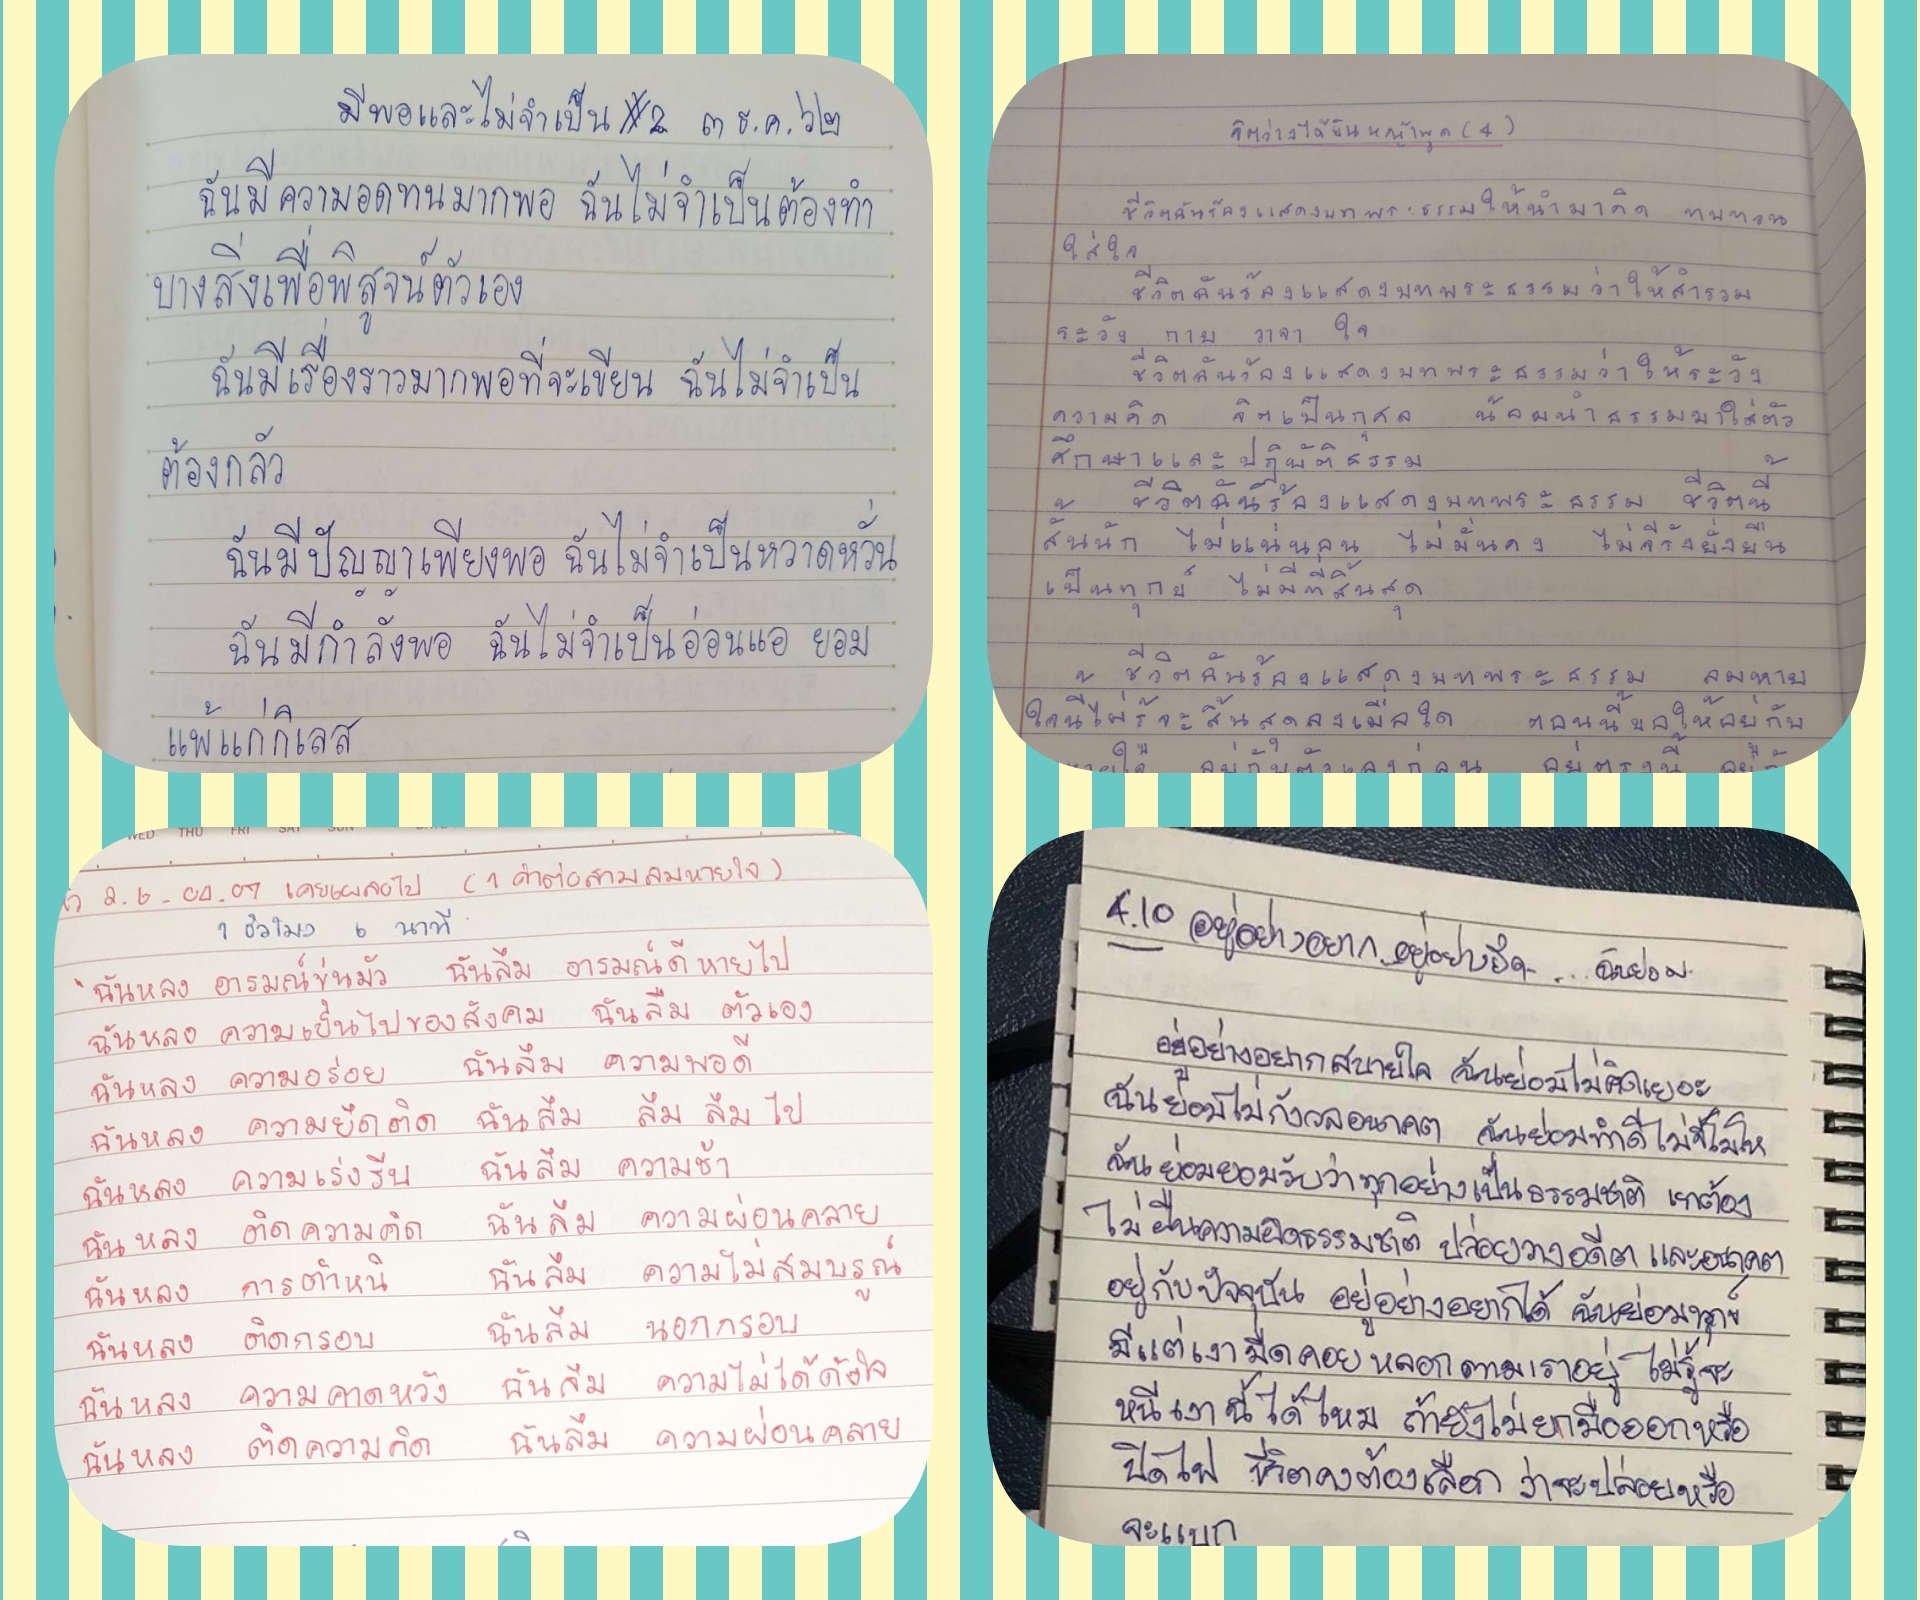 มีพอและไม่จำเป็น #2 ๓ ธ.ค. ๖๒
ฉันมีความอดทนมากพอ ฉันไม่จำเป็นต้องทำ
บางสิ่งเพื่อพิสูจน์ตัวเอง
ฉันมีเรื่องราวมากพอที่จะเขียน ฉันไม่จำเป็น
ต้องกลัว
ฉันมีปัญญาเพียงพอ ฉันไม่จำเป็นหวาดหวั่น
ฉันมีกำลังพอ ฉันไม่จำเป็นอ่อนแอ ยอม
แพ้แก่กิเลส
จิตว่างได้ยินหญ้าพูด (4)
ชีวิตฉันร้องแสดงบทพระธรรมให้นำมาคิด ทบทวน
ใส่ใจ
ชีวิตฉันร้องแสดงบทพระธรรมว่าให้สำรวม
ระวัง กาย วาจา ใจ
ชีวิตฉันร้องแสดงบทพระธรรมว่าให้ระวัง
ความคิด จิตเป็นกุศล น้อมนำธรรมมาใส่ตัว
ศึกษาและปฏิบัติธรรม
ชีวิตฉันร้องแสดงบทพระธรรม ชีวิตนี้
สั้นนัก ไม่แน่นอน ไม่มั่นคง ไม่จีรังยั่งยืน
เป็นทุกข์ ไม่มีที่สิ้นสุด
ชีวิตฉันร้องแสดงบทพระธรรม ลมหาย
ใจนี้ไม่รู้จะสิ้นสุดลงเมื่อใด ตอนนี้ขอให้อยู่กับ
อยู่กับตัวเองก่อน อยู่ตรงนี้
WED THU FRI SAT SUN
เคยเผลอไป (1 คำต่อสามลมหายใจ)
1 ชั่วโมง ๖ นาที
ฉันหลง อารมณ์ขุ่นมัว ฉันลืม อารมณ์ดีหายไป
ฉันหลง ความเป็นไปของสังคม ฉันลืม ตัวเอง
ฉันหลง ความอร่อย ฉันลืม ความพอดี
ฉันหลง ความยึดติด ฉันลืม ลืม ลืม ไป
ฉันหลง ความเร่งรีบ ฉันลืม ความช้า
ฉันหลง ติดความคิด ฉันลืม ความผ่อนคลาย
ฉันหลง การตำหนิ ฉันลืม ความไม่สมบรูณ์
ฉันหลง ติดกรอบ ฉันลืม นอกกรอบ
ฉันหลง ความคาดหวัง ฉันลืม ความไม่ได้ดั่งใจ
ฉันหลง ติดความคิด ฉันลืม ความผ่อนคลาย
4.10 อยู่อย่างอยาก..อยู่อย่างยึด....ฉันย่อม
อยู่อย่างอยากสบายใจ ฉันย่อมไม่คิดเยอะ
ฉันย่อมไม่กังวลอนาคต ฉันย่อมทำดีไม่ขี้โมโห
ฉันย่อมยอมรับว่าทุกอย่างเป็นธรรมชาติ เราต้อง
ไม่ฝืนความผิดธรรมชาติ ปล่อยวางอดีต และอนาคต
อยู่กับปัจจุบัน อยู่อย่างอยากได้ ฉันย่อมทุกข์
มีแต่เงามืดคอยหลอกตามเราอยู่ ไม่รู้จะ
หนีเงานี้ได้ไหม ถ้ายังไม่ยกมือออกหรือ
ปิดไฟ ชีวิตคงต้องเลือก ว่าจะปล่อยหรือ
จะแบก